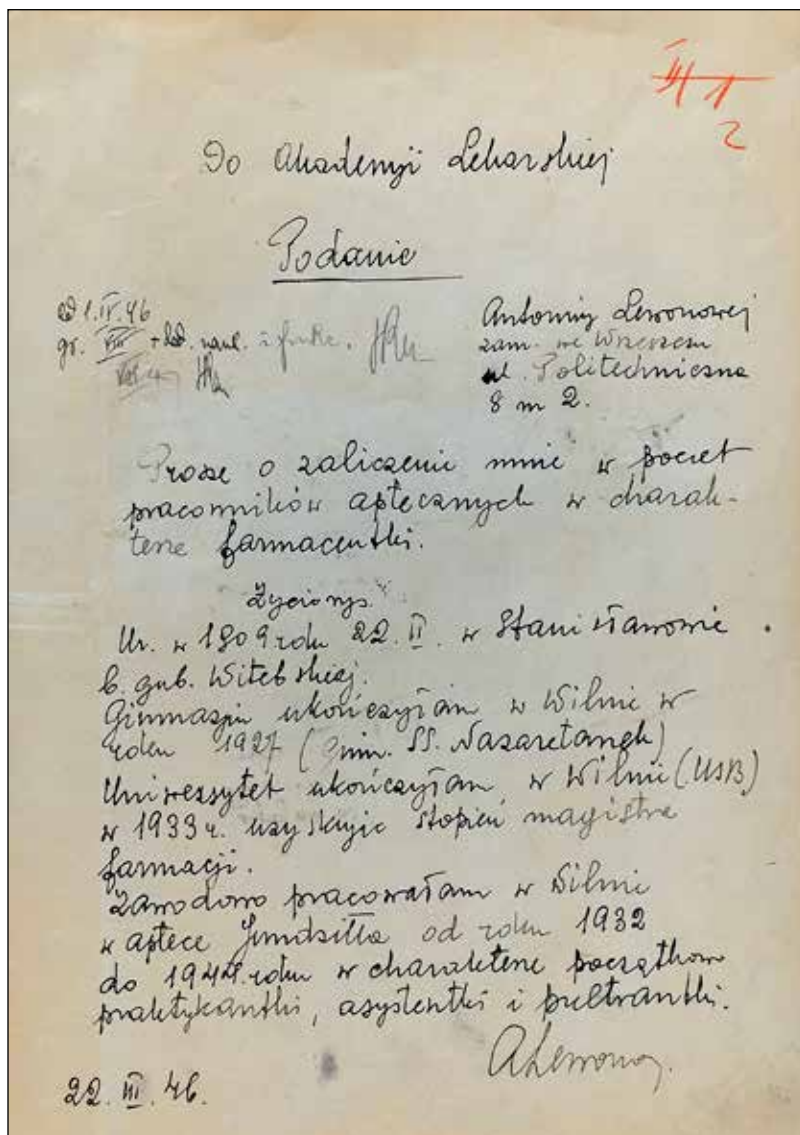 III 1
2
Do Akademji Lekarskiej
Podanie
od 1.IV.46
gr. VIII + dod. nauk. i funkc.
Antoniny Lewonowej
zam. we Wrzeszczu
ul. Politechniczna
8 m 2.
Proszę o zaliczenie mnie w poczet
pracowników aptecznych w charak-
terze farmaceutki.
Życiorys.
Ur. w 1909 roku 22. II. w Stanisławowie
b. gub. Witebskiej.
Gimnazjum ukończyłam w Wilnie w
roku 1927 (Gimn. SS. Nazaretanek)
Uniwersytet ukończyłam w Wilnie (USB)
w 1933 r. uzyskując stopień magistra
farmacji.
Zawodowo pracowałam w Wilnie
w aptece Jundziłła od roku 1932
do 1944 roku w charakterze początkowo
praktykantki, asystentki i
ALewonow.
22. III. 46.